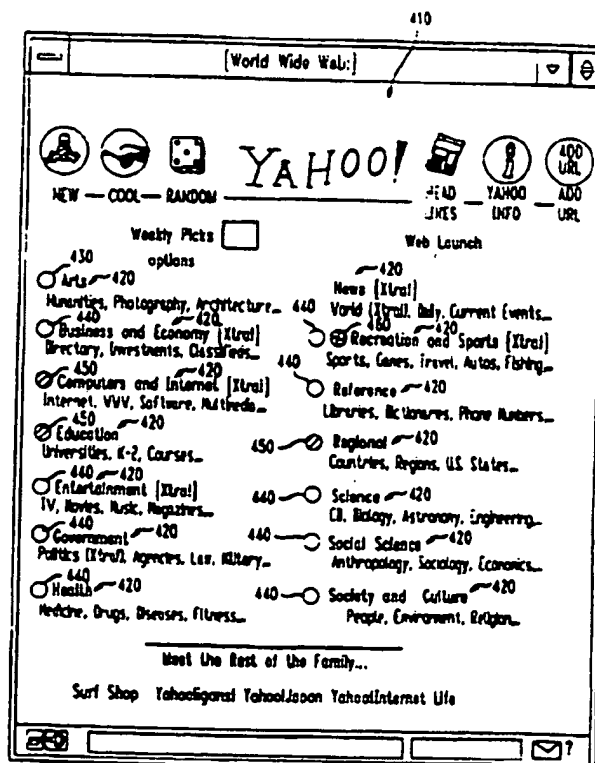 410
[World Wide Web:]
YAHOO!
ADD URL
NEW — COOL — RANDOM
YAHOO INFO — ADD URL
Weekly Picks
Web Launch
options
430
Arts 420
Humanities, Photography, Architecture...
440
Business and Economy [Xtra!] 420
Directory, Investments, Classifieds...
450
Computers and Internet [Xtra!] 420
Internet, WWW, Software, Multimedia...
450
Education 420
Universities, K-2, Courses...
440
Entertainment [Xtra!] 420
TV, Movies, Music, Magazines...
440
Government 420
Politics [Xtra!], Agencies, Law, Military...
440
Health 420
Medicine, Drugs, Diseases, Fitness...
420
News [Xtra!]
World [Xtra!], Daily, Current Events...
440 460 420
Recreation and Sports [Xtra!]
Sports, Games, Travel, Autos, Fishing...
440
Reference 420
Libraries, Dictionaries, Phone Numbers...
450 Regional 420
Countries, Regions, U.S. States...
440 Science 420
CS, Biology, Astronomy, Engineering...
440 Social Science 420
Anthropology, Sociology, Economics...
440 Society and Culture 420
People, Enviroment, Religion...
Meet the Rest of the Family...
Surf Shop Yahooligans! Yahoo!Japan Yahoo!Internet Life
?